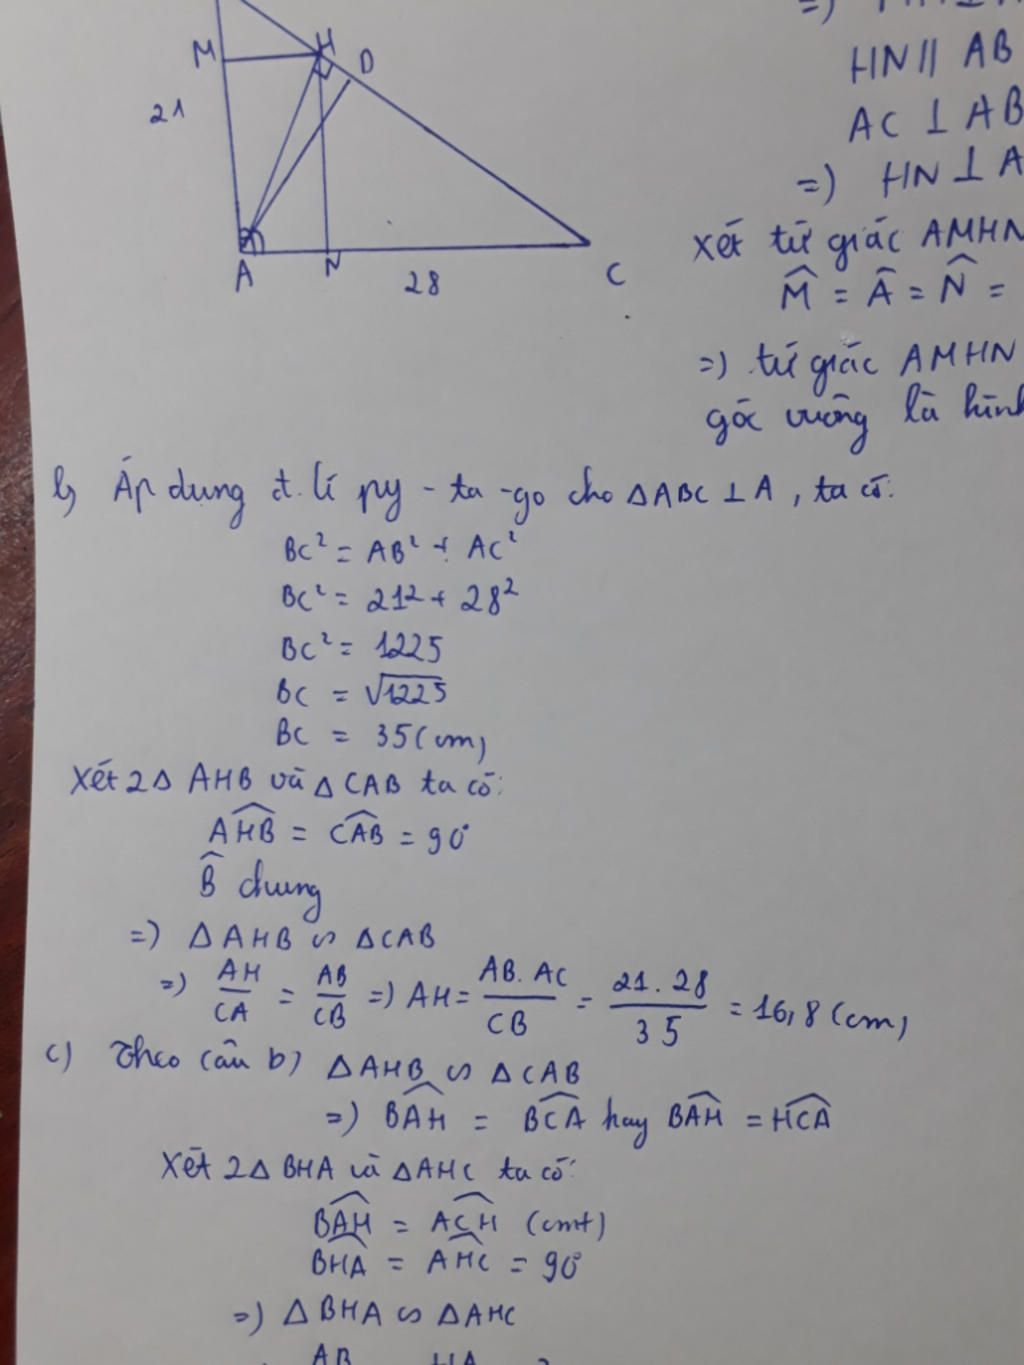 M
H
D
21
A
N
28
C
HN // AB
AC ⊥ AB
=) HN ⊥ A
Xét tứ giác AMHN
M̂ = Â = N̂ =
=) tứ giác AMHN
góc vuông là hình
b, Áp dụng đ.lí py-ta-go cho △ABC ⊥ A, ta có:
BC² = AB² + AC²
BC² = 21² + 28²
BC² = 1225
BC = √1225
BC = 35(cm)
Xét 2△ AHB và △ CAB ta có:
AHB = CAB = 90°
B̂ chung
=) △AHB ∽ △CAB
=) AH/CA = AB/CB =) AH = AB.AC/CB = 21.28/35 = 16,8 (cm)
c) Theo câu b) △AHB ∽ △CAB
=) BAH = BCA hay BAH = HCA
Xét 2△ BHA và △AHC ta có:
BAH = ACH (cmt)
BHA = AHC = 90°
=) △BHA ∽ △AHC
AB HA